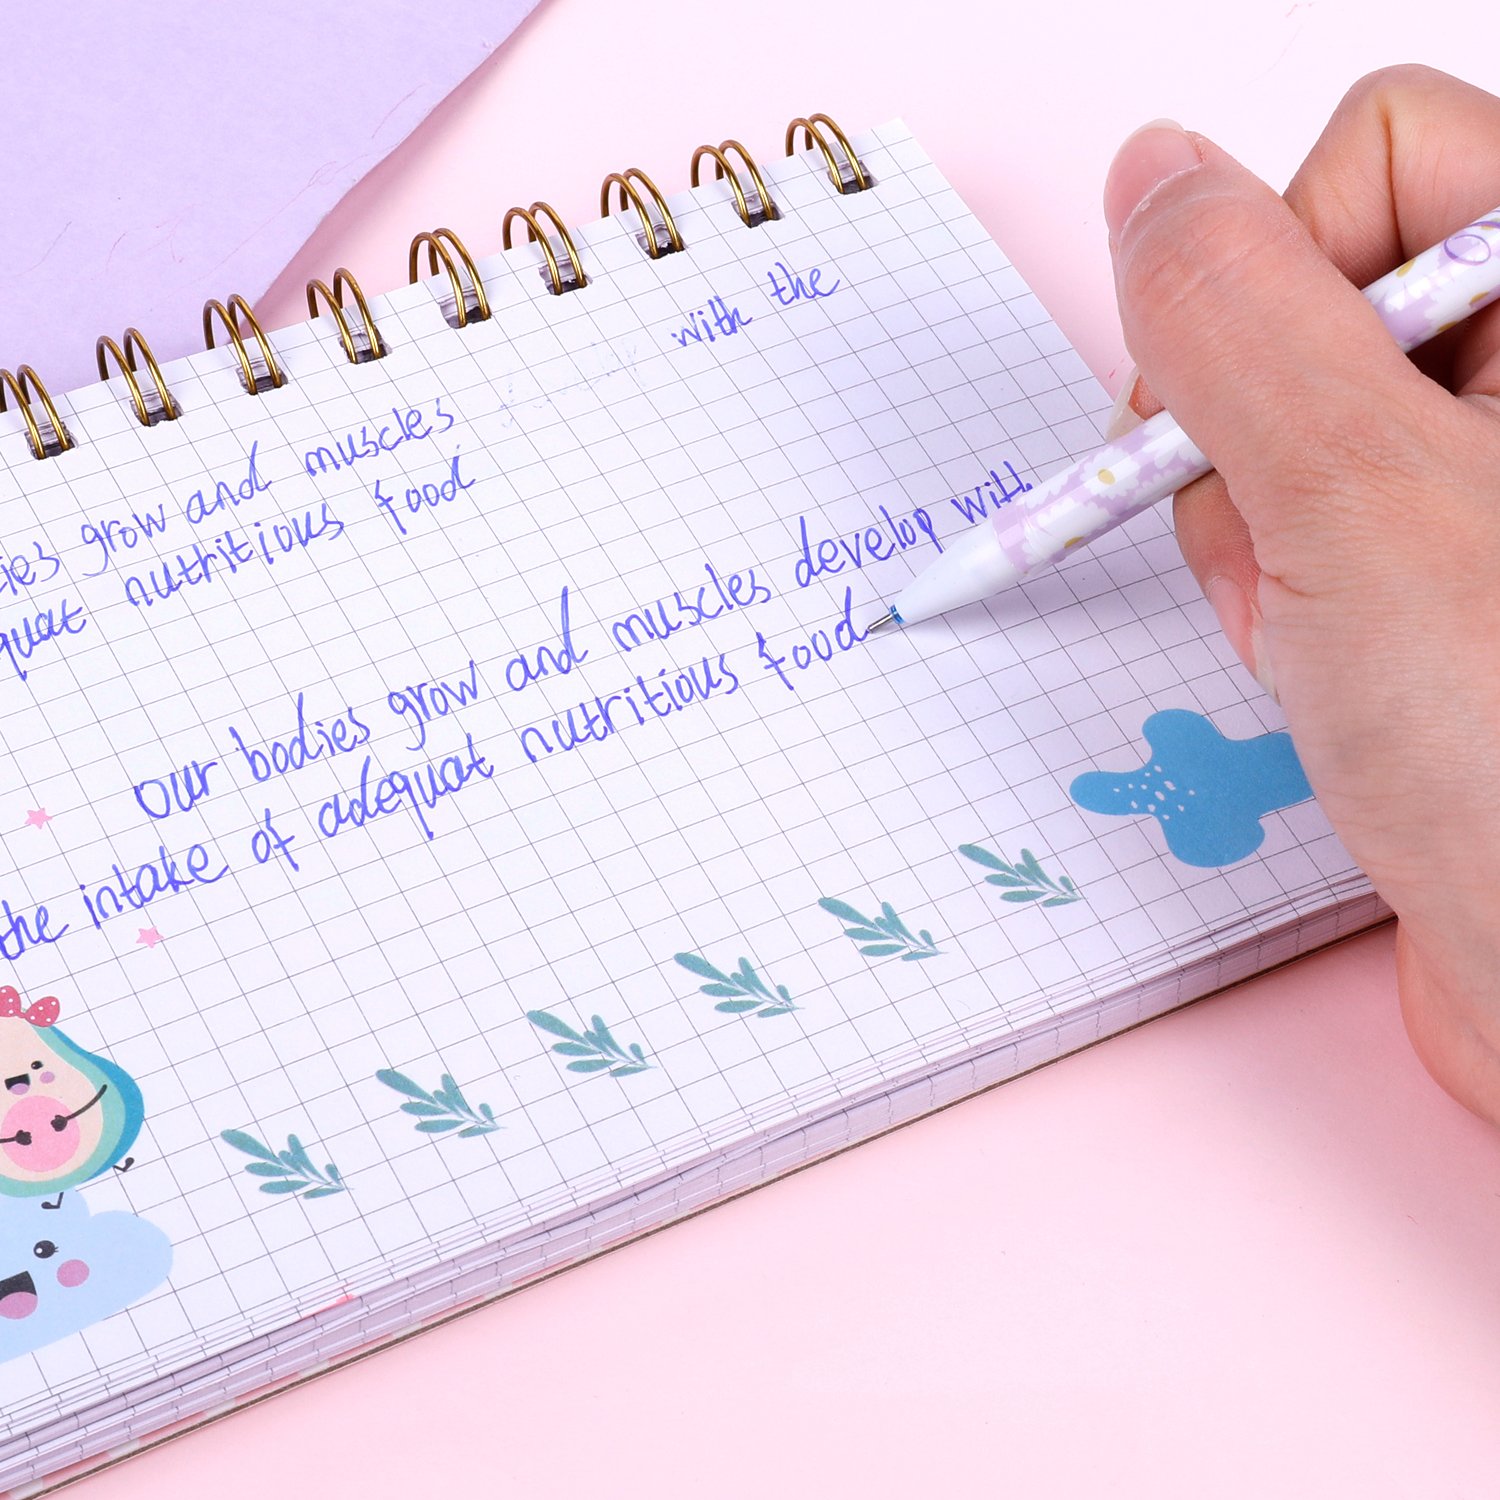 with the
grow and muscles
nutritious food
our bodies grow and muscles develop with
the intake of adequat nutritious food